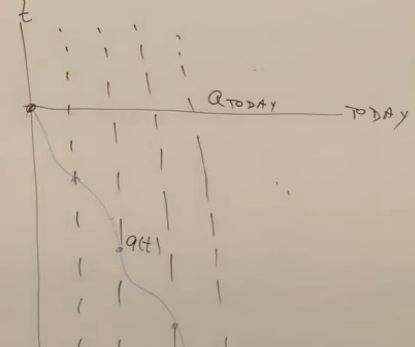 t
a TODAY
TODAY
a(t)